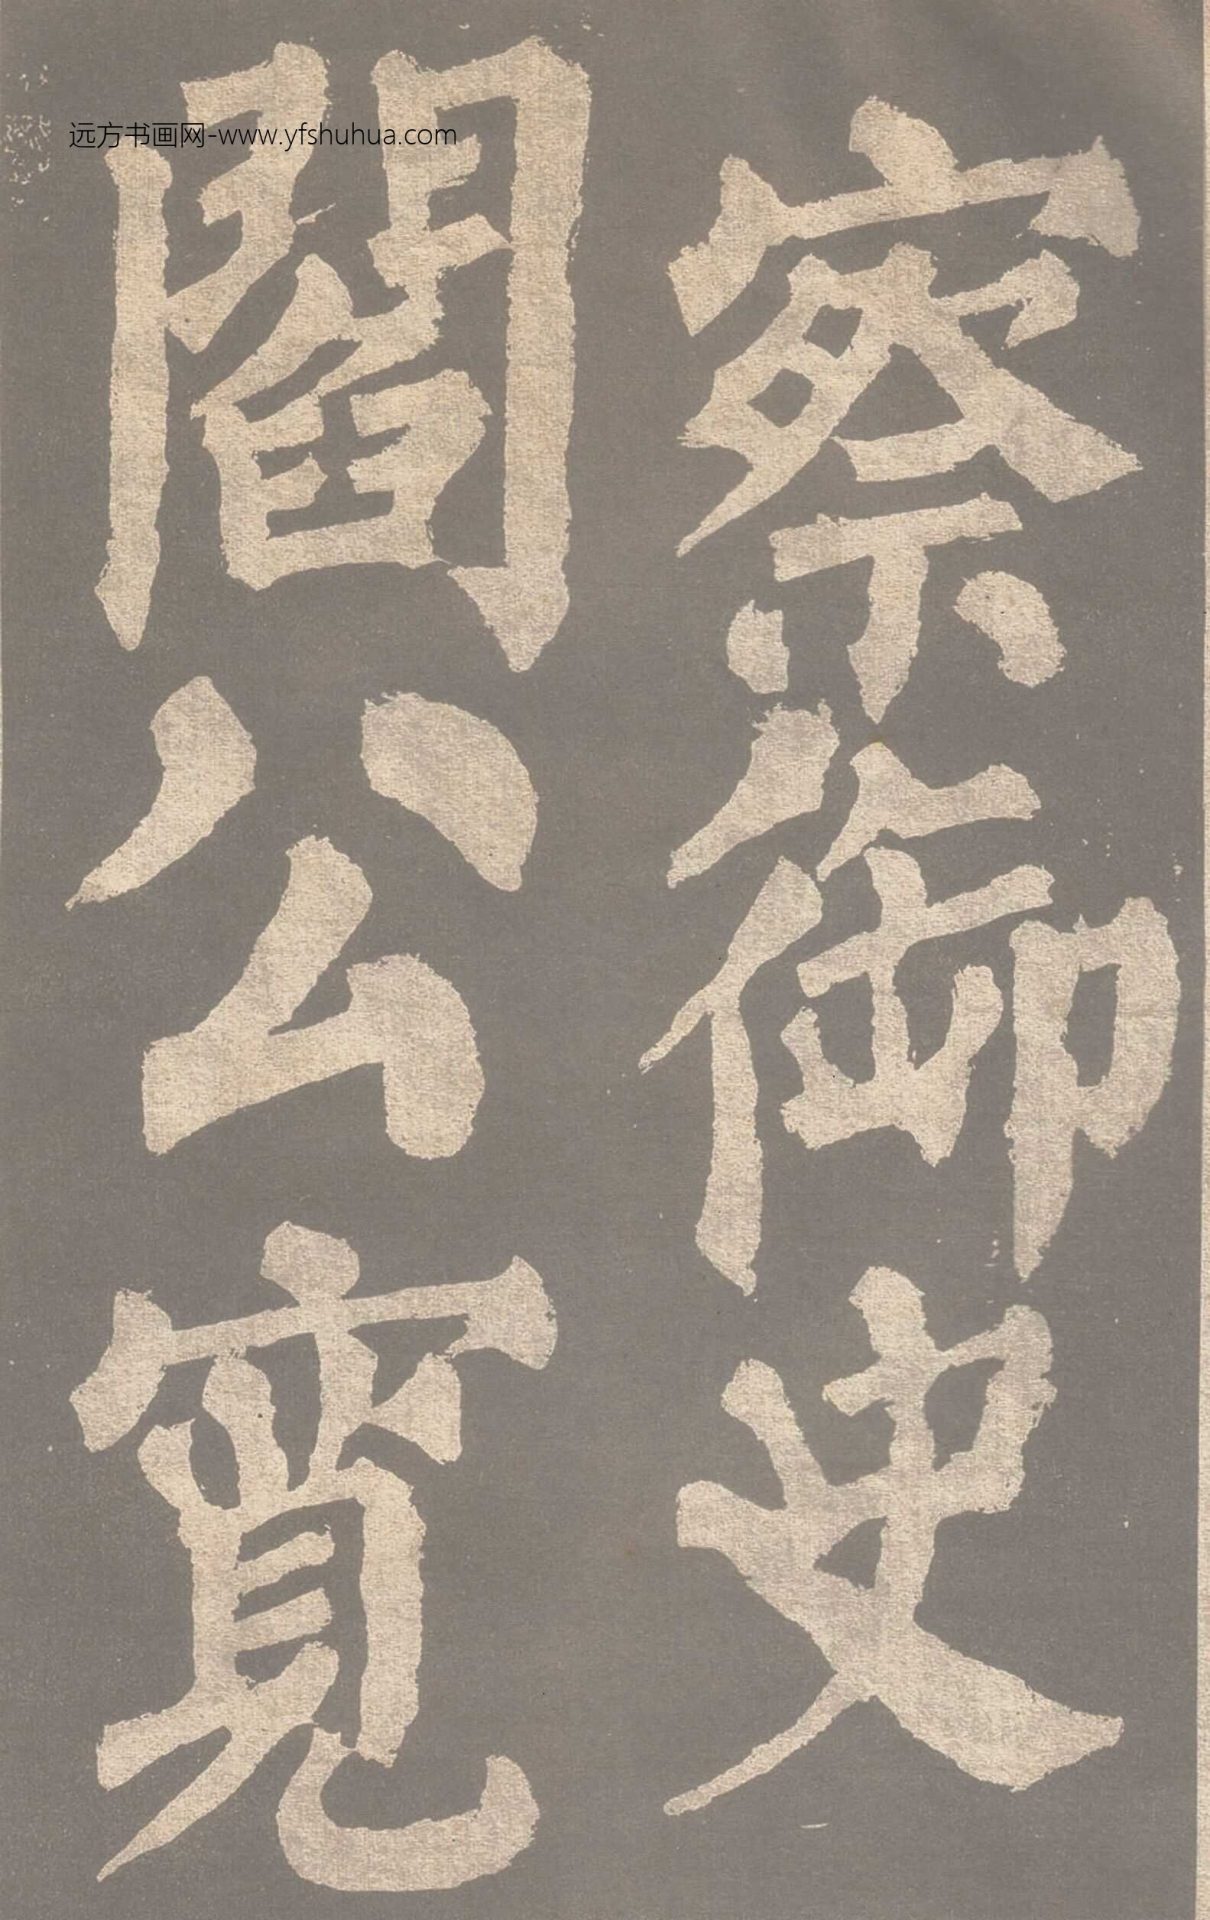 察御史
閻公寛
远方书画网-www.yfshuhua.com